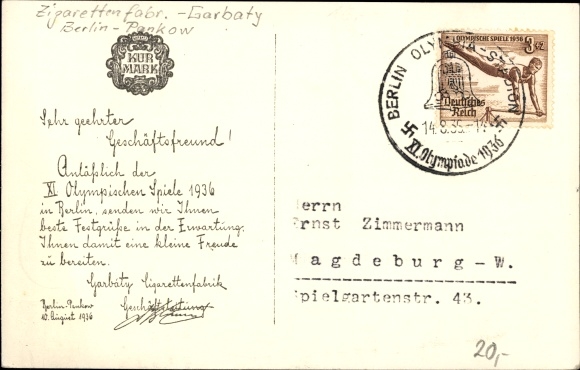 Zigarettenfabr. - Garbaty
Berlin - Pankow
KUR
MARK
Sehr geehrter
Geschäftsfreund!
Anläßlich der
XI. Olympischen Spiele 1936
in Berlin, senden wir Ihnen
beste Festgrüße in der Erwartung,
Ihnen damit eine kleine Freude
zu bereiten.
Garbáty Cigarettenfabrik
Berlin-Pankow
10. August 1936
Geschäftsleitung
BERLIN OLYMPIA-STADION
14.8.36.-14
XI. Olympiade 1936
OLYMPISCHE SPIELE 1936
3+2
Deutsches
Reich
Herrn
Ernst Zimmermann
Magdeburg-W.
Spielgartenstr. 43.
20,-